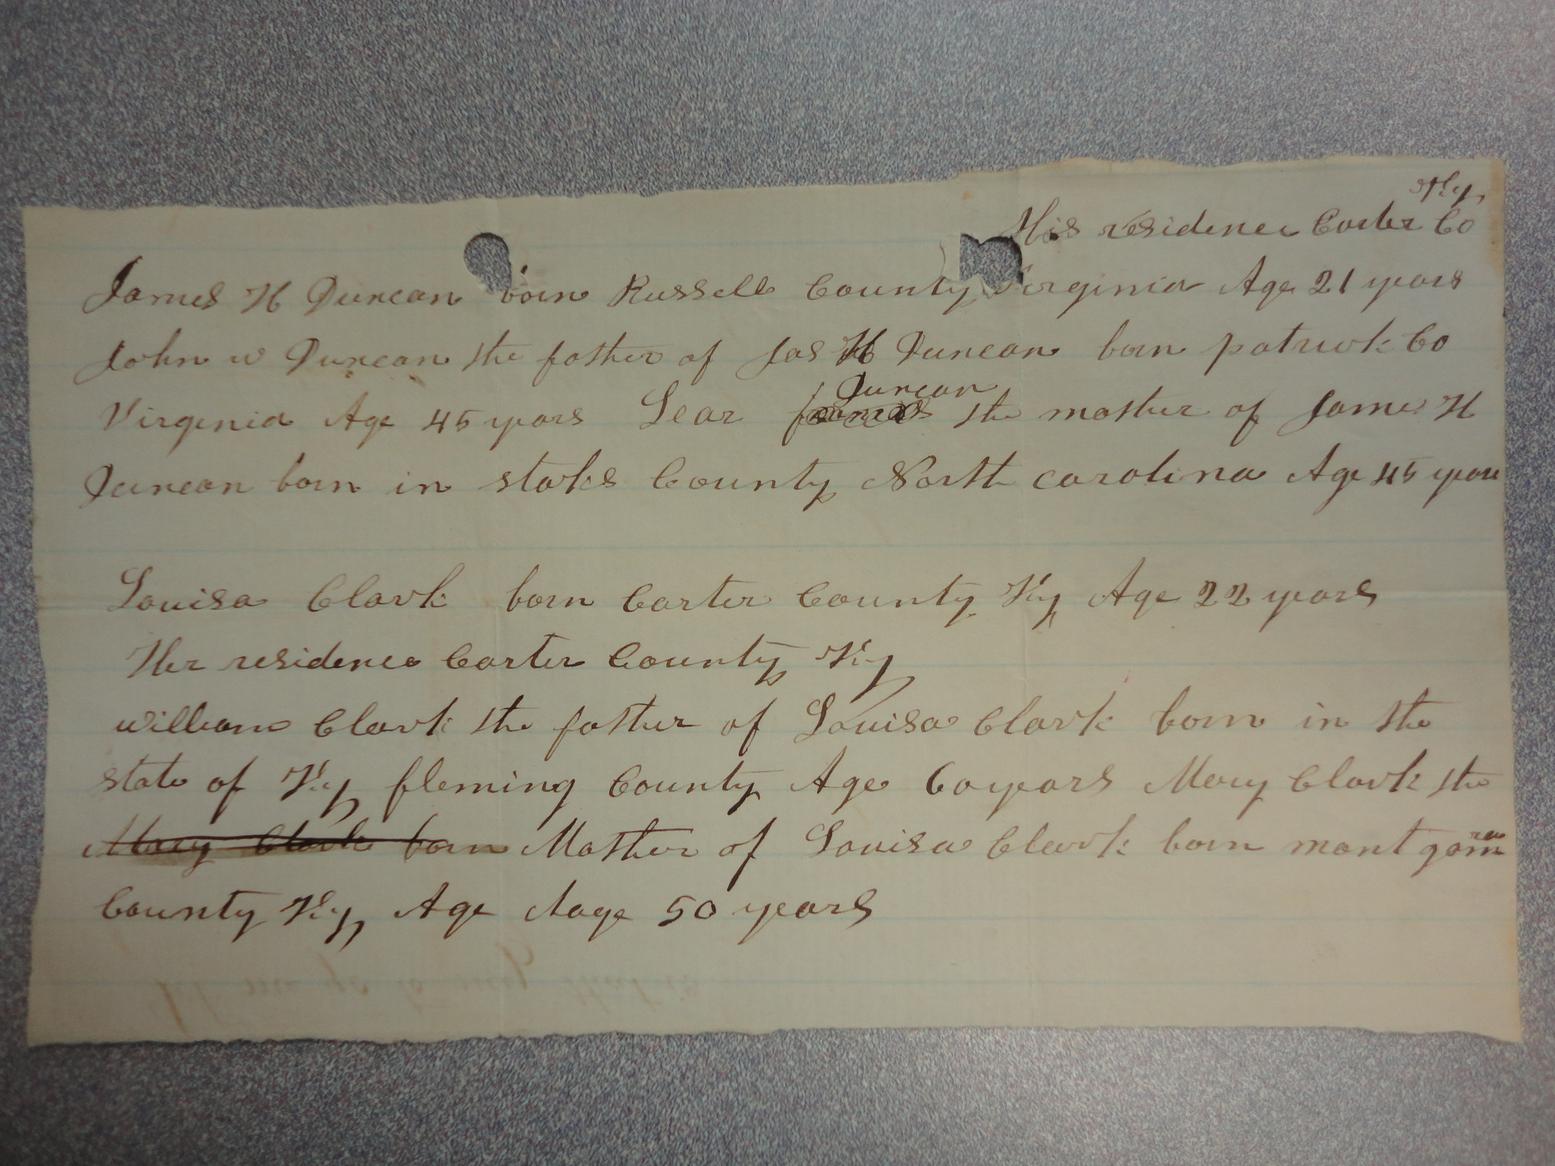 Ky,
His residence Carter Co
James H Duncan born Russell County Virginia Age 21 years
John w Duncan the father of Jas H Duncan born patrick Co
Duncan
Virginia Age 45 years Lear the mother of James H
Duncan born in stoks County North carolina Age 45 years
Louisa Clark born Carter County Ky Age 22 years
Her residence Carter County Ky
william Clark the father of Louisa Clark born in the
state of Ky, fleming County Age 60 years Mary Clark the
Mary Clark born Mother of Louisa Clark born montgom
County Ky, Age Aage 50 years